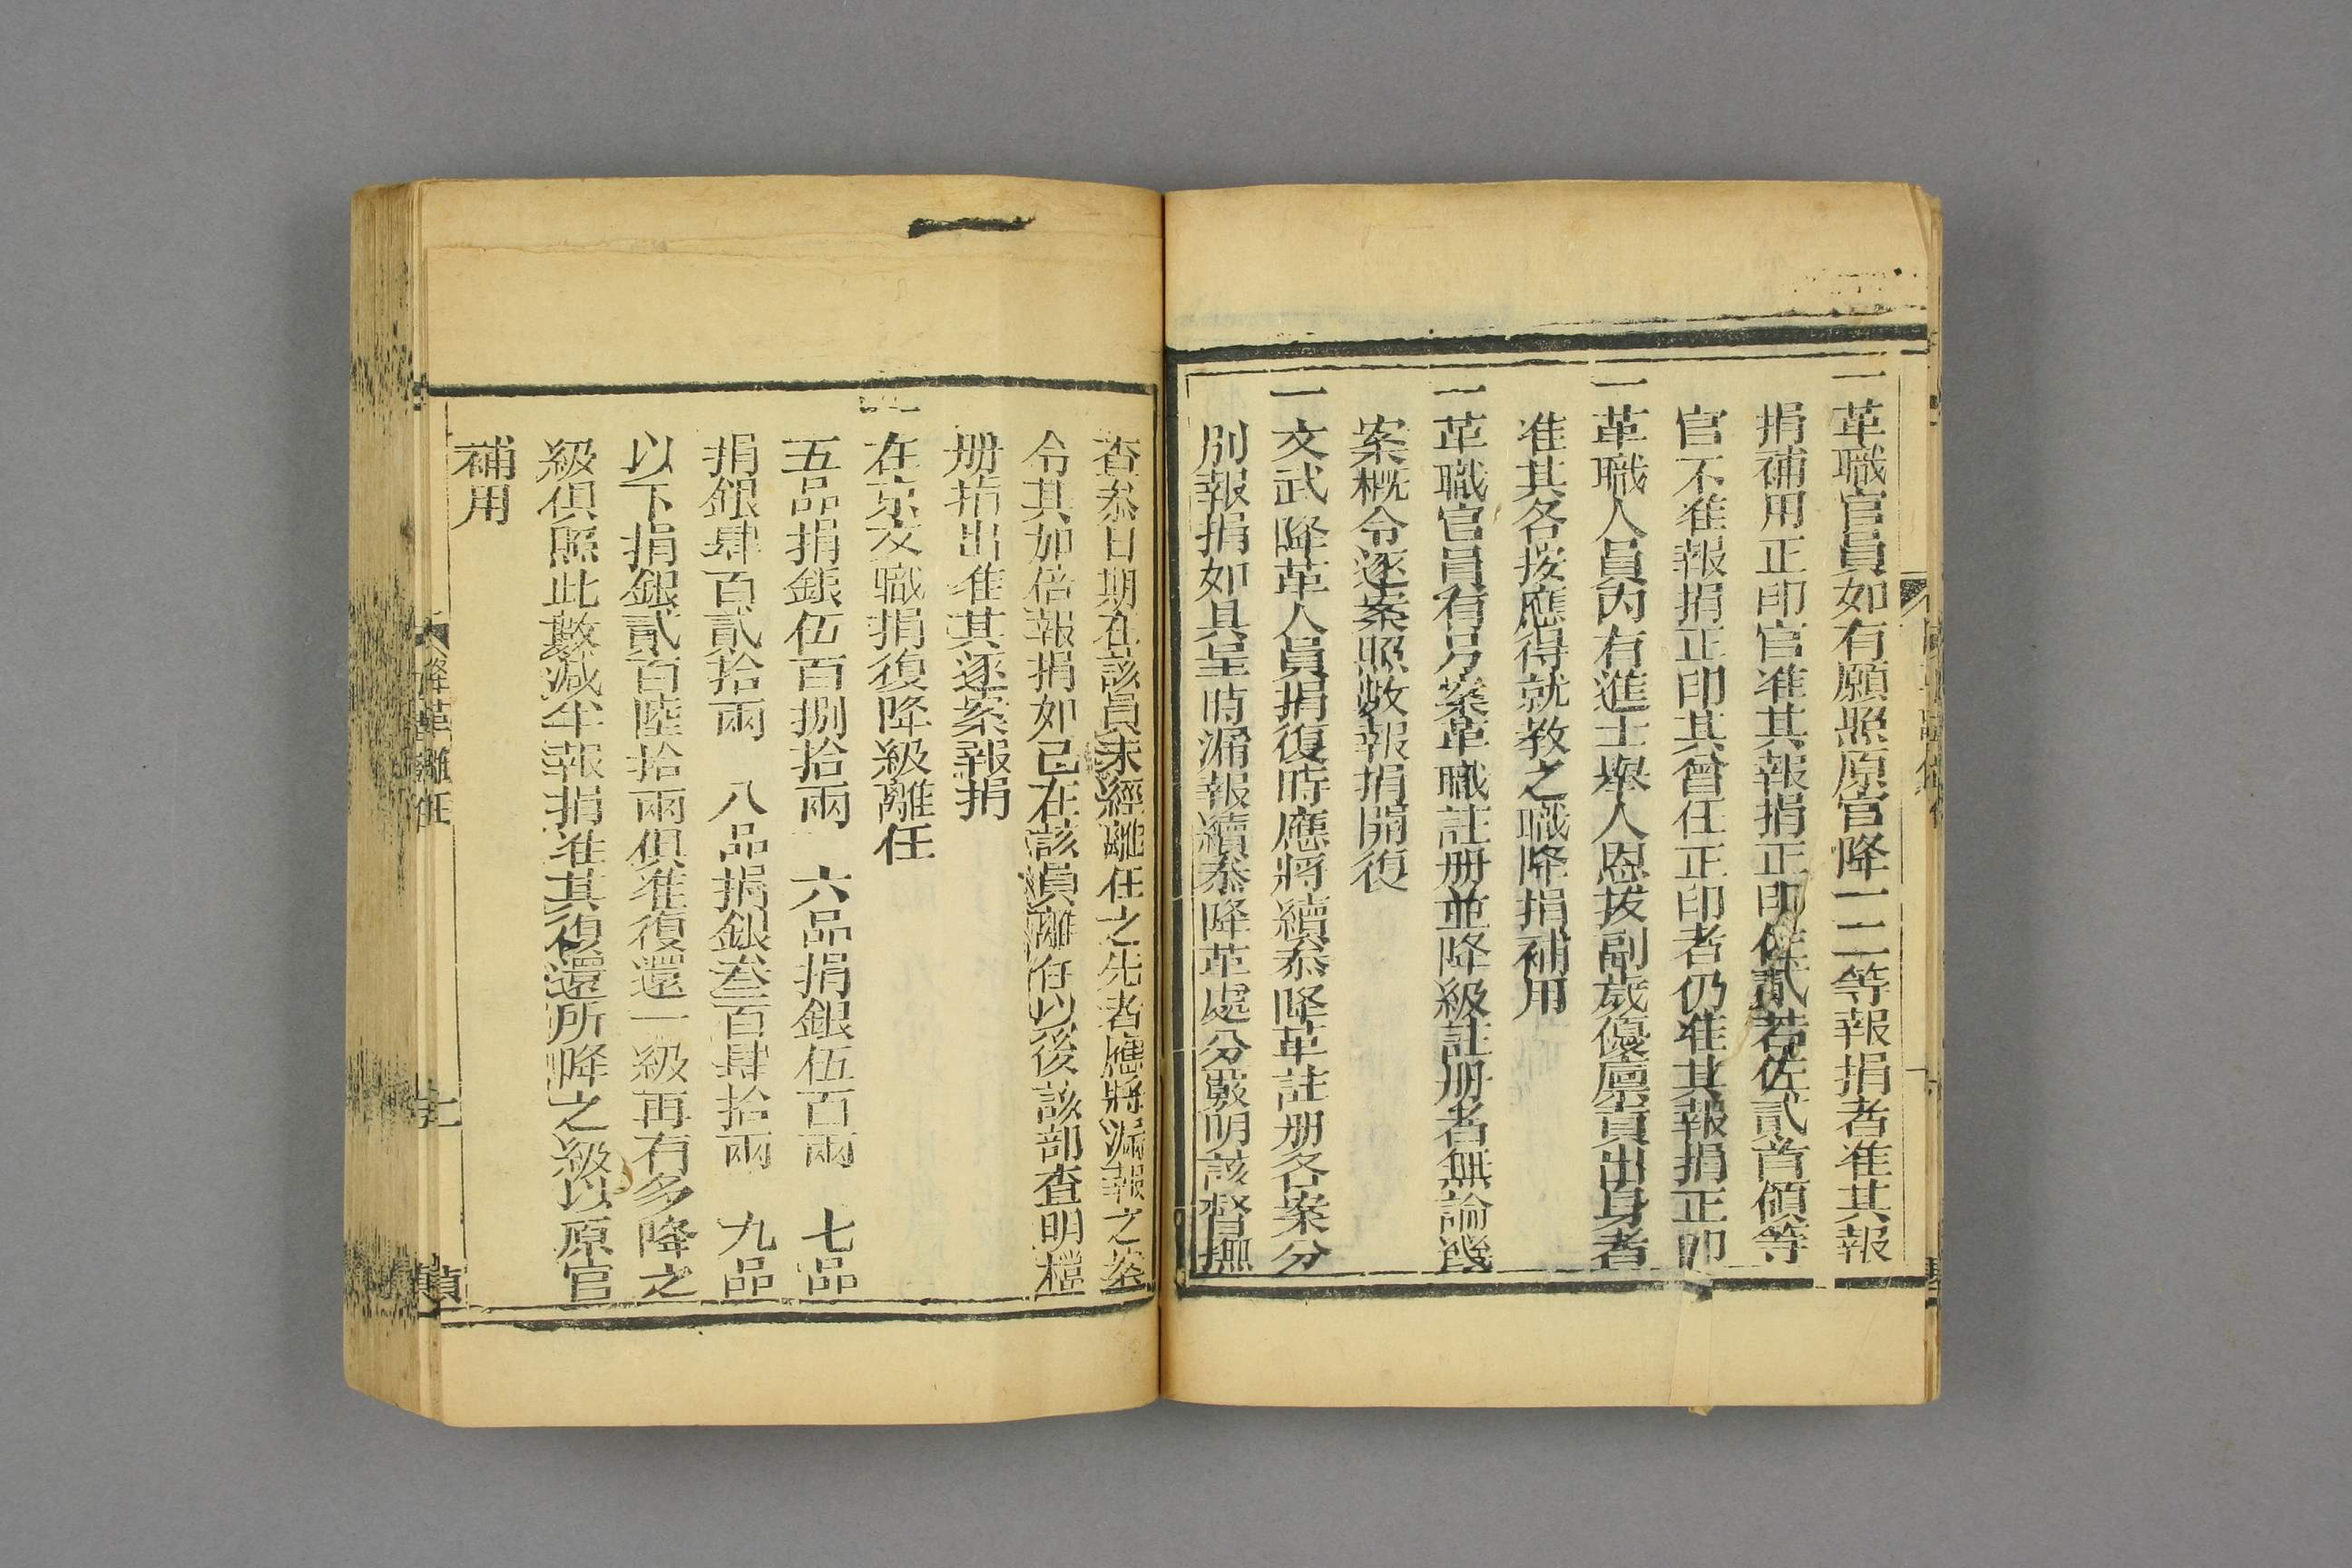 一革職官員如有願照原官降一二等報捐者准其報
捐補用正印官准其報捐正印佐貳若佐貳首領等
官不准報捐正印其曾任正印者仍准其報捐正印
一革職人員內有進士舉人恩拔副歲優廩貢出身者
准其各按應得就教之職降捐補用
一革職官員有另案革職註册並降級註册者無論幾
案概令逐案照數報捐開復
一文武降革人員捐復時應將續叅降革註册各案分
別報捐如具呈時漏報續叅降革處分嚴明該督撫
查叅日期在該員未經離任之先者應將漏報之案
令其加倍報捐如已在該員離任以後該部查明檔
册指出准其逐案報捐
一在京文職捐復降級離任
五品捐銀伍百捌拾兩 六品捐銀伍百兩 七品
捐銀肆百貳拾兩 八品捐銀叁百肆拾兩 九品
以下捐銀貳百陸拾兩俱准復還一級再有多降之
級俱照此數減半報捐准其復還所降之級以原官
補用
降革離任
七